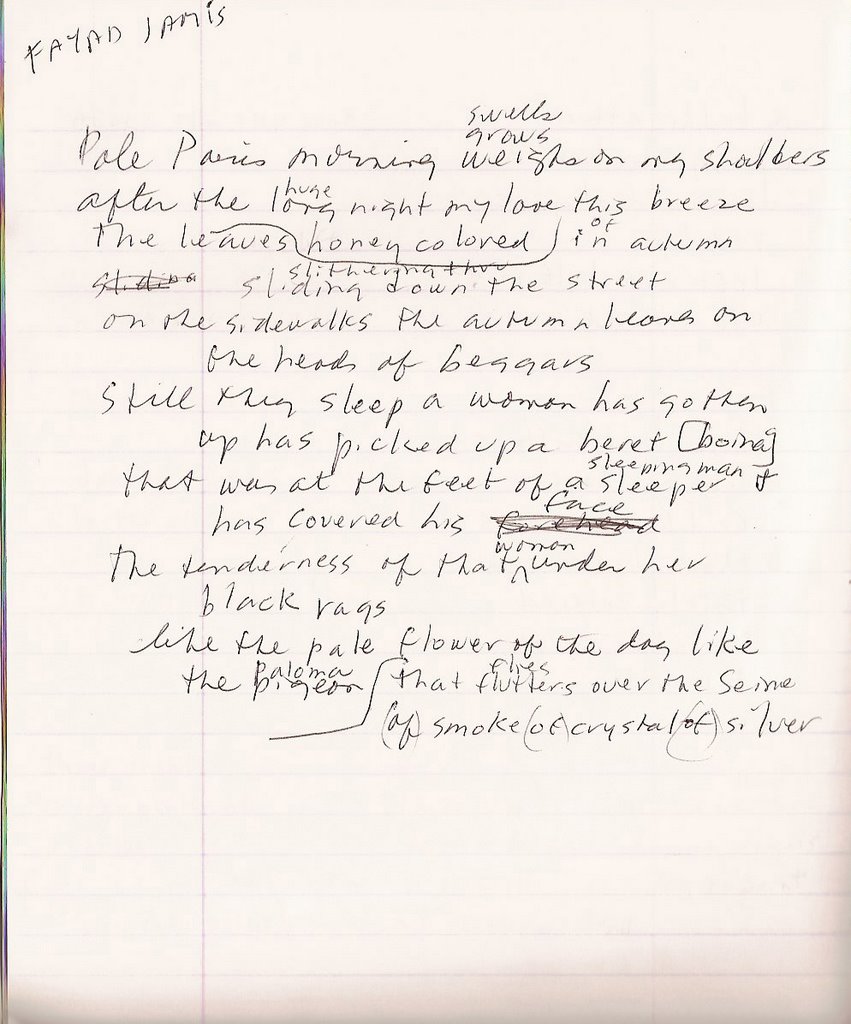 FAYAD JAMIS
swells
grows
Pale Paris morning weighs on my shoulders
huge
after the long night my love this breeze
of
the leaves honey colored in autumn
slithering thru
sliding sliding down the street
on the sidewalks the autumn leaves on
the heads of beggars
Still they sleep a woman has gotten
up has picked up a beret [boina]
sleeping man
that was at the feet of a sleeper &
face
has covered his forehead
woman
the tenderness of that ^ under her
black rags
like the pale flower of the day like
paloma flies
the pigeon that flutters over the Seine
(of) smoke (of) crystal (of) silver